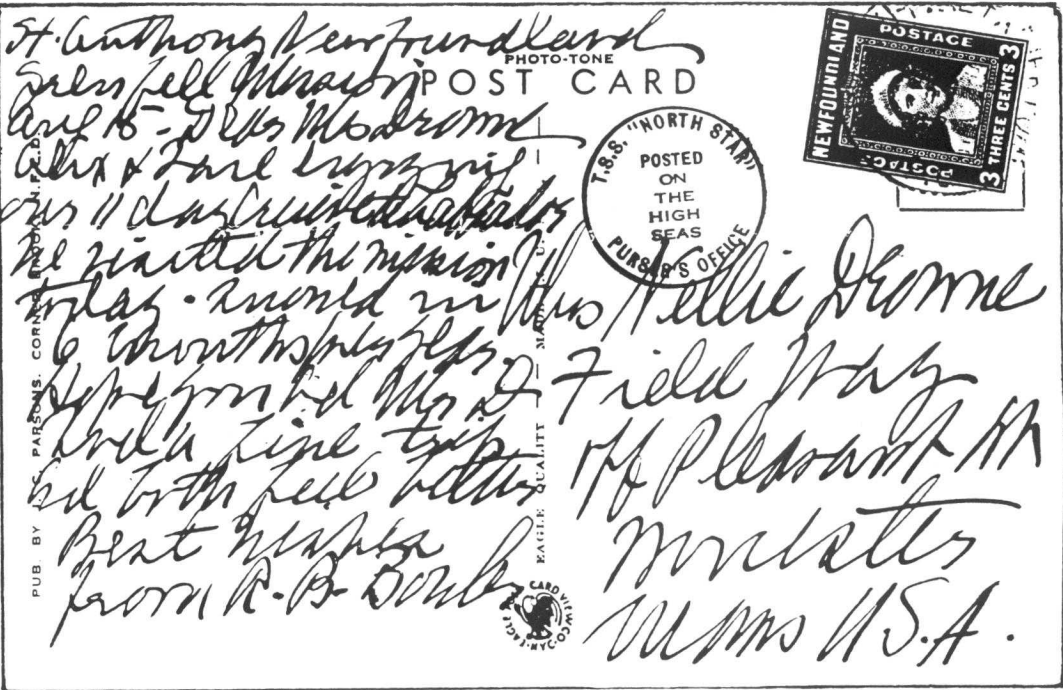 St. Anthony Newfoundland
Grenfell Mission
Aug 15 - Dear Mrs Drowne
Alex & I are enjoying
our 11 day Cruise
We visited the mission
today.
6 months
Hope you and Mrs D
had a fine trip
nd both feel better
Best Wishes
from R. B.
PHOTO-TONE
POST CARD
T.S.S. "NORTH STAR"
POSTED
ON
THE
HIGH
SEAS
PURSER'S OFFICE
POSTAGE
NEWFOUNDLAND
3 THREE CENTS 3
POSTAGE
Nellie Drowne
Field Way
off Pleasant St
Worcester
Mass U.S.A.
PUB. BY J. C. PARSONS. CORNER BROOK. N.F.L.D.
EAGLE QUALITY — MADE IN U.
EAGLE CARD VIEW CO. N.Y.C.